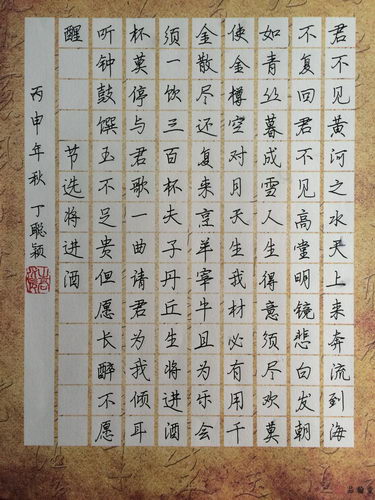 君不见黄河之水天上来奔流到海
不复回君不见高堂明镜悲白发朝
如青丝暮成雪人生得意须尽欢莫
使金樽空对月天生我材必有用千
金散尽还复来烹羊宰牛且为乐会
须一饮三百杯夫子丹丘生将进酒
杯莫停与君歌一曲请君为我倾耳
听钟鼓馔玉不足贵但愿长醉不愿
醒 节选将进酒
丙申年秋 丁聪颖